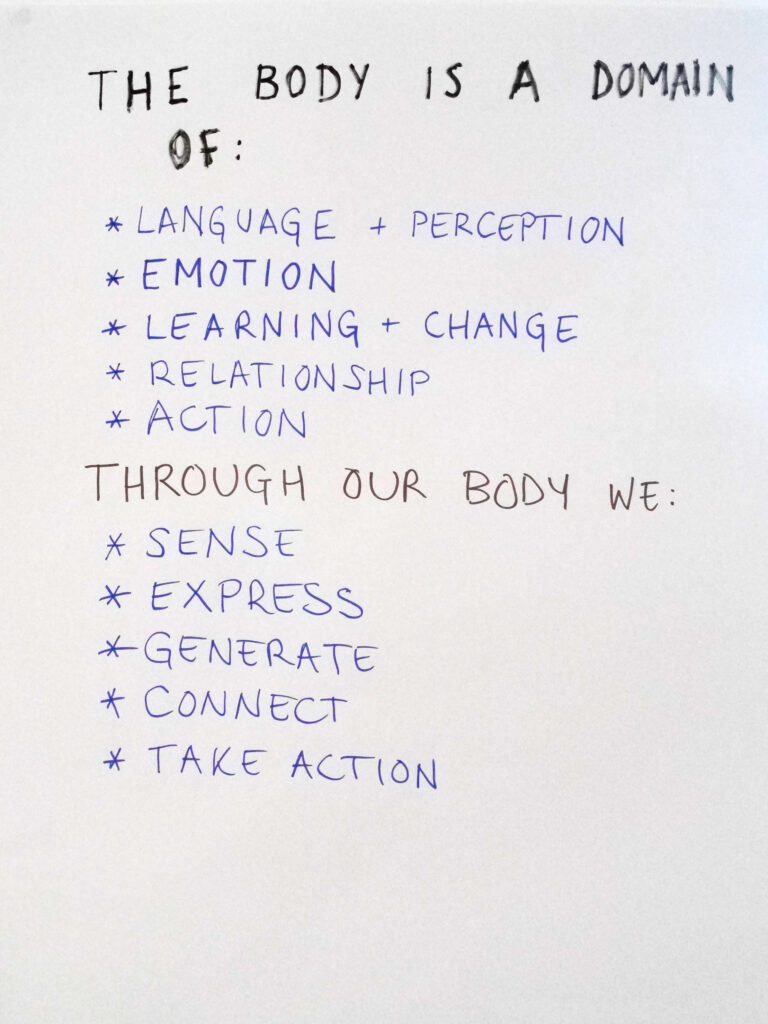 THE BODY IS A DOMAIN
OF:
* LANGUAGE + PERCEPTION
* EMOTION
* LEARNING + CHANGE
* RELATIONSHIP
* ACTION
THROUGH OUR BODY WE:
* SENSE
* EXPRESS
* GENERATE
* CONNECT
* TAKE ACTION